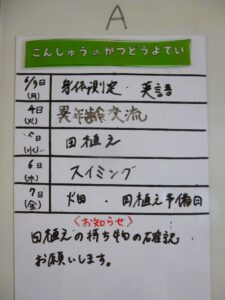 A
こんしゅうのかつどうよてい
6/3日(月) 身体測定・英語
4日(火) 異年齢交流
5日(水) 田植え
6日(木) スイミング
7日(金) 田植え予備日
〈お知らせ〉
田植えの持ち物の確認
お願いします。